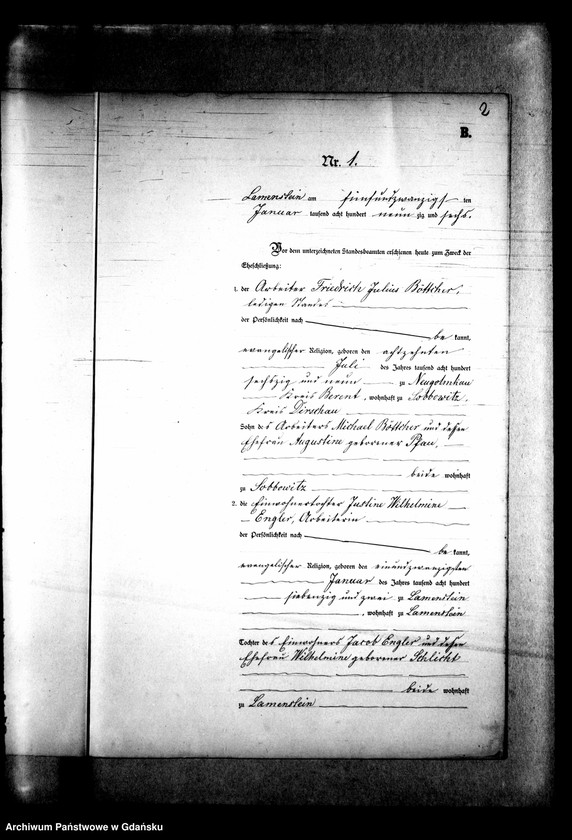 2
B.
Nr. 1.
Lamenstein am fünfundzwanzigsten
Januar tausend acht hundert neunzig und sechs.
Vor dem unterzeichneten Standesbeamten erschienen heute zum Zweck der
Eheschließung:
1. der Arbeiter Friedrich Julius Böttcher,
ledigen Standes
der Persönlichkeit nach
bekannt,
evangelischer Religion, geboren den achtzehnten
Juli des Jahres tausend acht hundert
sechszig und neun zu Neugolmkau
Kreis Berent, wohnhaft zu Sobbowitz,
Kreis Dirschau
Sohn des Arbeiters Michael Böttcher und dessen
Ehefrau Augustine geborener Pfau,
beide wohnhaft
zu Sobbowitz
2. die Einwohnertochter Justine Wilhelmine
Engler, Arbeiterin
der Persönlichkeit nach
bekannt,
evangelischer Religion, geboren den einundzwanzigsten
Januar des Jahres tausend acht hundert
siebenzig und zwei zu Lamenstein
, wohnhaft zu Lamenstein
Tochter des Einwohners Jacob Engler und dessen
Ehefrau Wilhelmine geborener Schlicht
beide wohnhaft
zu Lamenstein
Archiwum Państwowe w Gdańsku